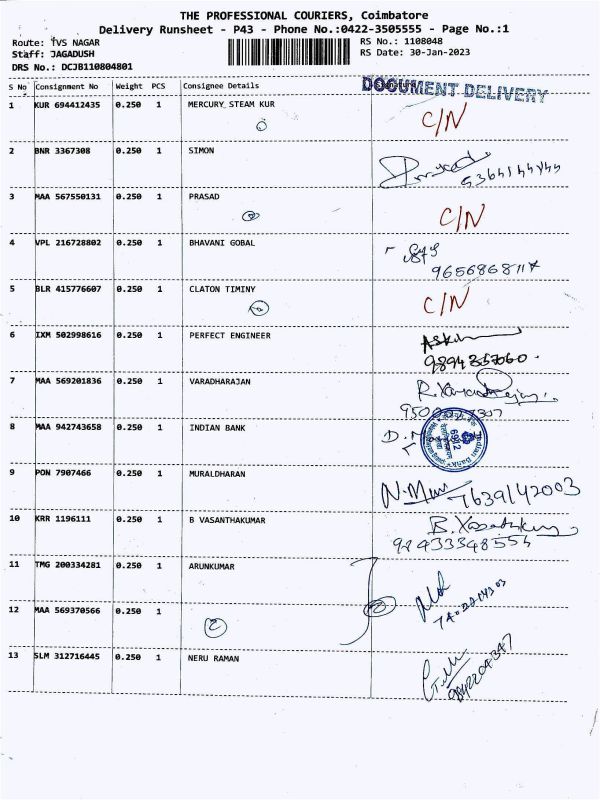 THE PROFESSIONAL COURIERS, Coimbatore
Delivery Runsheet - P43 - Phone No.:0422-3505555 - Page No.:1
Route: TVS NAGAR
Staff: JAGADUSH
DRS No.: DCJB110804801
RS No.: 1108048
RS Date: 30-Jan-2023
S No Consignment No Weight PCS Consignee Details
DOCUMENT DELIVERY
1 KUR 694412435 0.250 1 MERCURY STEAM KUR
C/N
2 BNR 3367308 0.250 1 SIMON
3 MAA 567550131 0.250 1 PRASAD
C/N
4 VPL 216728802 0.250 1 BHAVANI GOBAL
5 BLR 415776607 0.250 1 CLATON TIMINY
C/N
6 IXM 502998616 0.250 1 PERFECT ENGINEER
7 MAA 569201836 0.250 1 VARADHARAJAN
8 MAA 942743658 0.250 1 INDIAN BANK
9 PON 7907466 0.250 1 MURALDHARAN
7639142003
10 KRR 1196111 0.250 1 B VASANTHAKUMAR
11 TMG 200334281 0.250 1 ARUNKUMAR
12 MAA 569370566 0.250 1
2
13 SLM 312716445 0.250 1 NERU RAMAN
9842204347